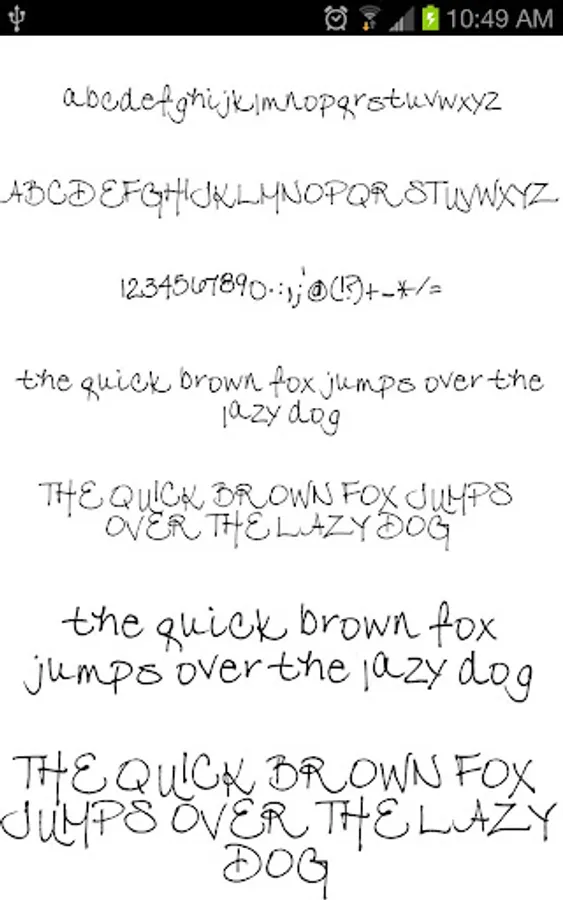 10:49 AM
abcdefghijklmnopqrstuvwxyz
ABCDEFGHIJKLMNOPQRSTUVWXYZ
1234567890.:,;'@(!?)+-*/=
the quick brown fox jumps over the
lazy dog
THE QUICK BROWN FOX JUMPS
OVER THE LAZY DOG
the quick brown fox
jumps over the lazy dog
THE QUICK BROWN FOX
JUMPS OVER THE LAZY
DOG